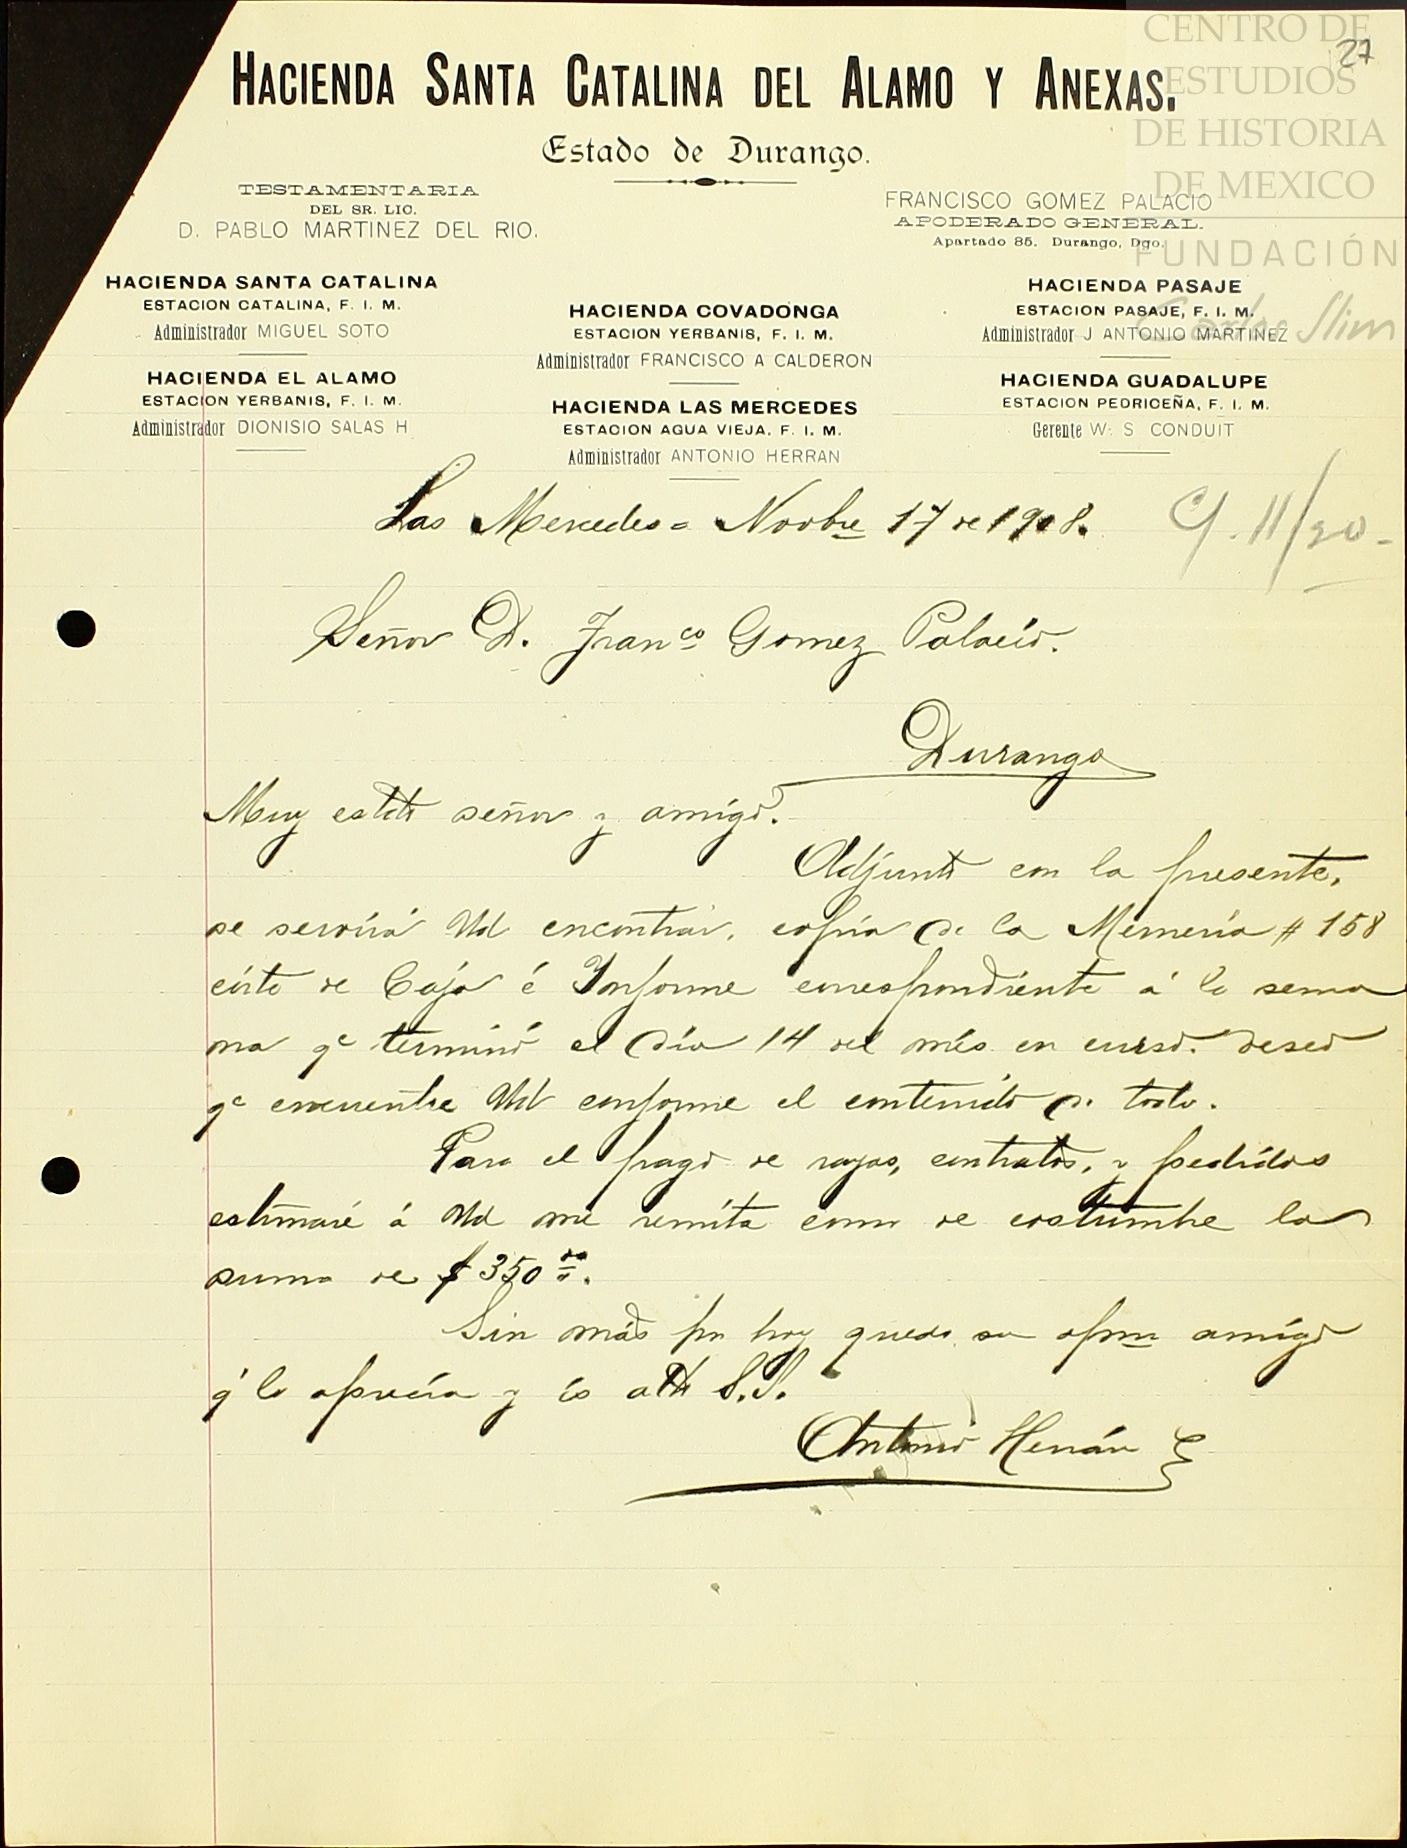 CENTRO DE
ESTUDIOS
DE HISTORIA
DE MEXICO
FUNDACIÓN
Carlos Slim
27
HACIENDA SANTA CATALINA DEL ALAMO Y ANEXAS.
Estado de Durango.
TESTAMENTARIA
DEL SR. LIC.
D. PABLO MARTINEZ DEL RIO.
FRANCISCO GOMEZ PALACIO
APODERADO GENERAL.
Apartado 85. Durango, Dgo.
HACIENDA SANTA CATALINA
ESTACION CATALINA, F. I. M.
Administrador MIGUEL SOTO
HACIENDA EL ALAMO
ESTACION YERBANIS, F. I. M.
Administrador DIONISIO SALAS H
HACIENDA COVADONGA
ESTACION YERBANIS, F. I. M.
Administrador FRANCISCO A CALDERON
HACIENDA LAS MERCEDES
ESTACION AGUA VIEJA. F. I. M.
Administrador ANTONIO HERRAN
HACIENDA PASAJE
ESTACION PASAJE, F. I. M.
Administrador J ANTONIO MARTINEZ
HACIENDA GUADALUPE
ESTACION PEDRICEÑA, F. I. M.
Gerente W. S CONDUIT
Las Mercedes = Novbre 17 de 1908.
C. 11/20-
Señor D. Franco Gomez Palacio.
Durango
Muy estdo señor y amigo.
Adjunto con la presente,
se servirá Ud encontrar, copia de la Memoria # 158
córte de Caja é Ynforme correspondiente á la sema
na qe terminó el día 14 del més en curso. deseo
qe encuentre Ud conforme el contenido de todo.
Para el pago de rayas, contratos, y pedidos
estimaré á Ud me remita como de costumbre la
suma de $ 350 oo.
Sin más por hoy quedo su afmo amigo
q' lo aprecia y és atto S.S.
Antonio Herrán